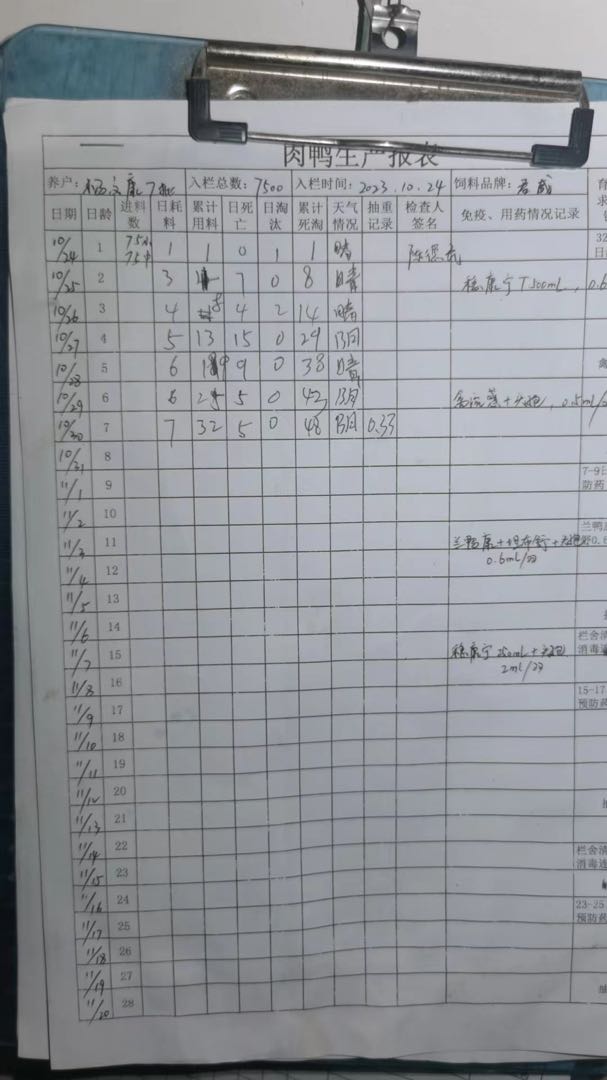 肉鸭生产报表
养户: 7批 入栏总数: 7500 入栏时间: 2023.10.24 饲料品牌:
日期 日龄 进料数 日耗料 累计用料 日死亡 日淘汰 累计死淘 天气情况 抽重记录 检查人签名 免疫、用药情况记录
10/24 1 1 1 0 1 1 晴 32
10/25 2 3 4 7 0 8 晴 稳康宁 T 500mL,
10/26 3 4 8 4 2 14 晴
10/27 4 5 13 15 0 29 阴
10/28 5 6 19 9 0 38 晴
10/29 6 6 25 5 0 43 阴 0.5ml/
10/30 7 7 32 5 0 48 阴 0.33
10/31 8
11/1 9 7-9日 防药
11/2 10
11/3 11 0.6mL/羽
11/4 12
11/5 13
11/6 14
11/7 15 稳康宁 250mL+ 2mL/羽 栏舍清 消毒
11/8 16
11/9 17 15-17 预防药
11/10 18
11/11 19
11/12 20
11/13 21
11/14 22
11/15 23 栏舍清 消毒连
11/16 24
11/17 25 23-25 预防药
11/18 26
11/19 27
11/20 28